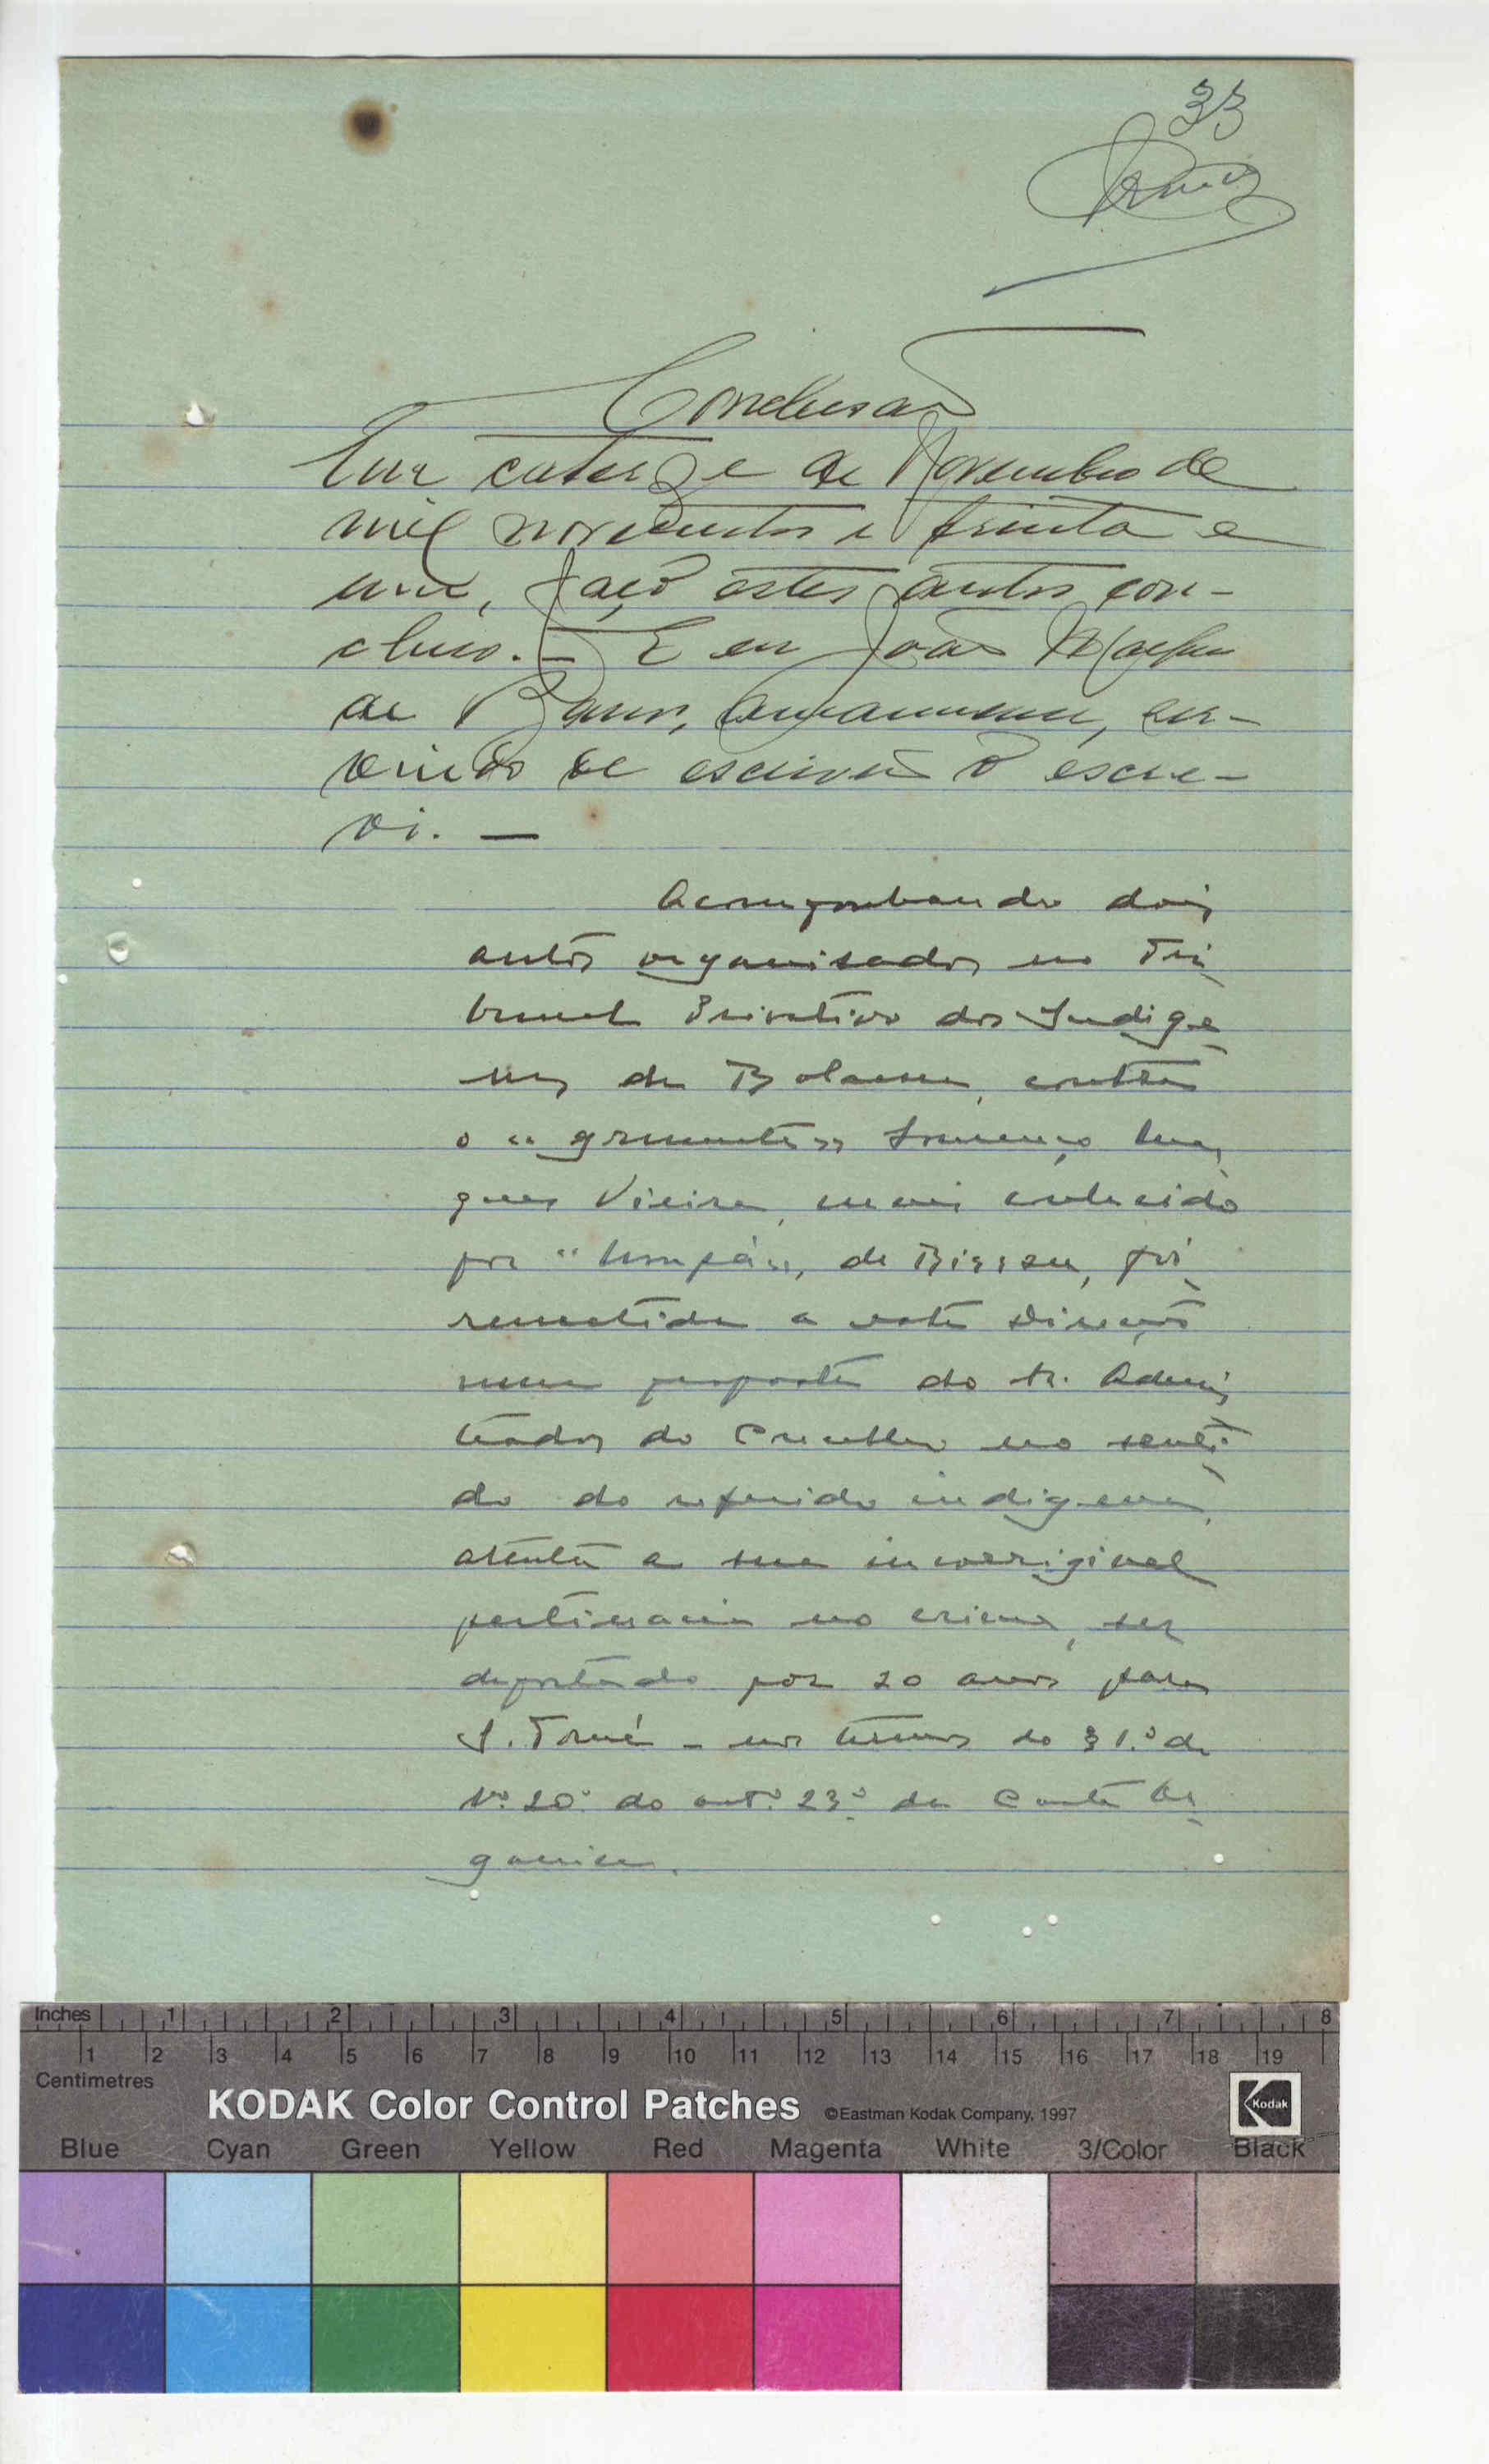 33
Conclusão
Em catorze de Novembro de
mil novecentos e trinta e
um, faço estes autos con-
clusos. — E eu João
de Barros, amanuense, ser-
vindo de escrivão o escre-
vi. —
Acompanhando dois
autos organisados no Tri
bunal Privativo dos Indige
nas de Bolama, contra
o "grumete" Lourenço
Vieira, mais conhecido
por de Bissau, foi
remetida a esta Direcção
uma proposta do Sr. Adminis
trador do Concelho no senti
do do referido indigena,
atenta a sua incorrigivel
pertinacia no crime, ser
deportado por 20 anos para
S. Tomé - nos termos do § 1.º do
Nº 20º do artº 23º da Carta Or
ganica.
Inches 1 2 3 4 5 6 7 8
1 2 3 4 5 6 7 8 9 10 11 12 13 14 15 16 17 18 19
Centimetres
KODAK Color Control Patches ©Eastman Kodak Company, 1997 Kodak
Blue Cyan Green Yellow Red Magenta White 3/Color Black